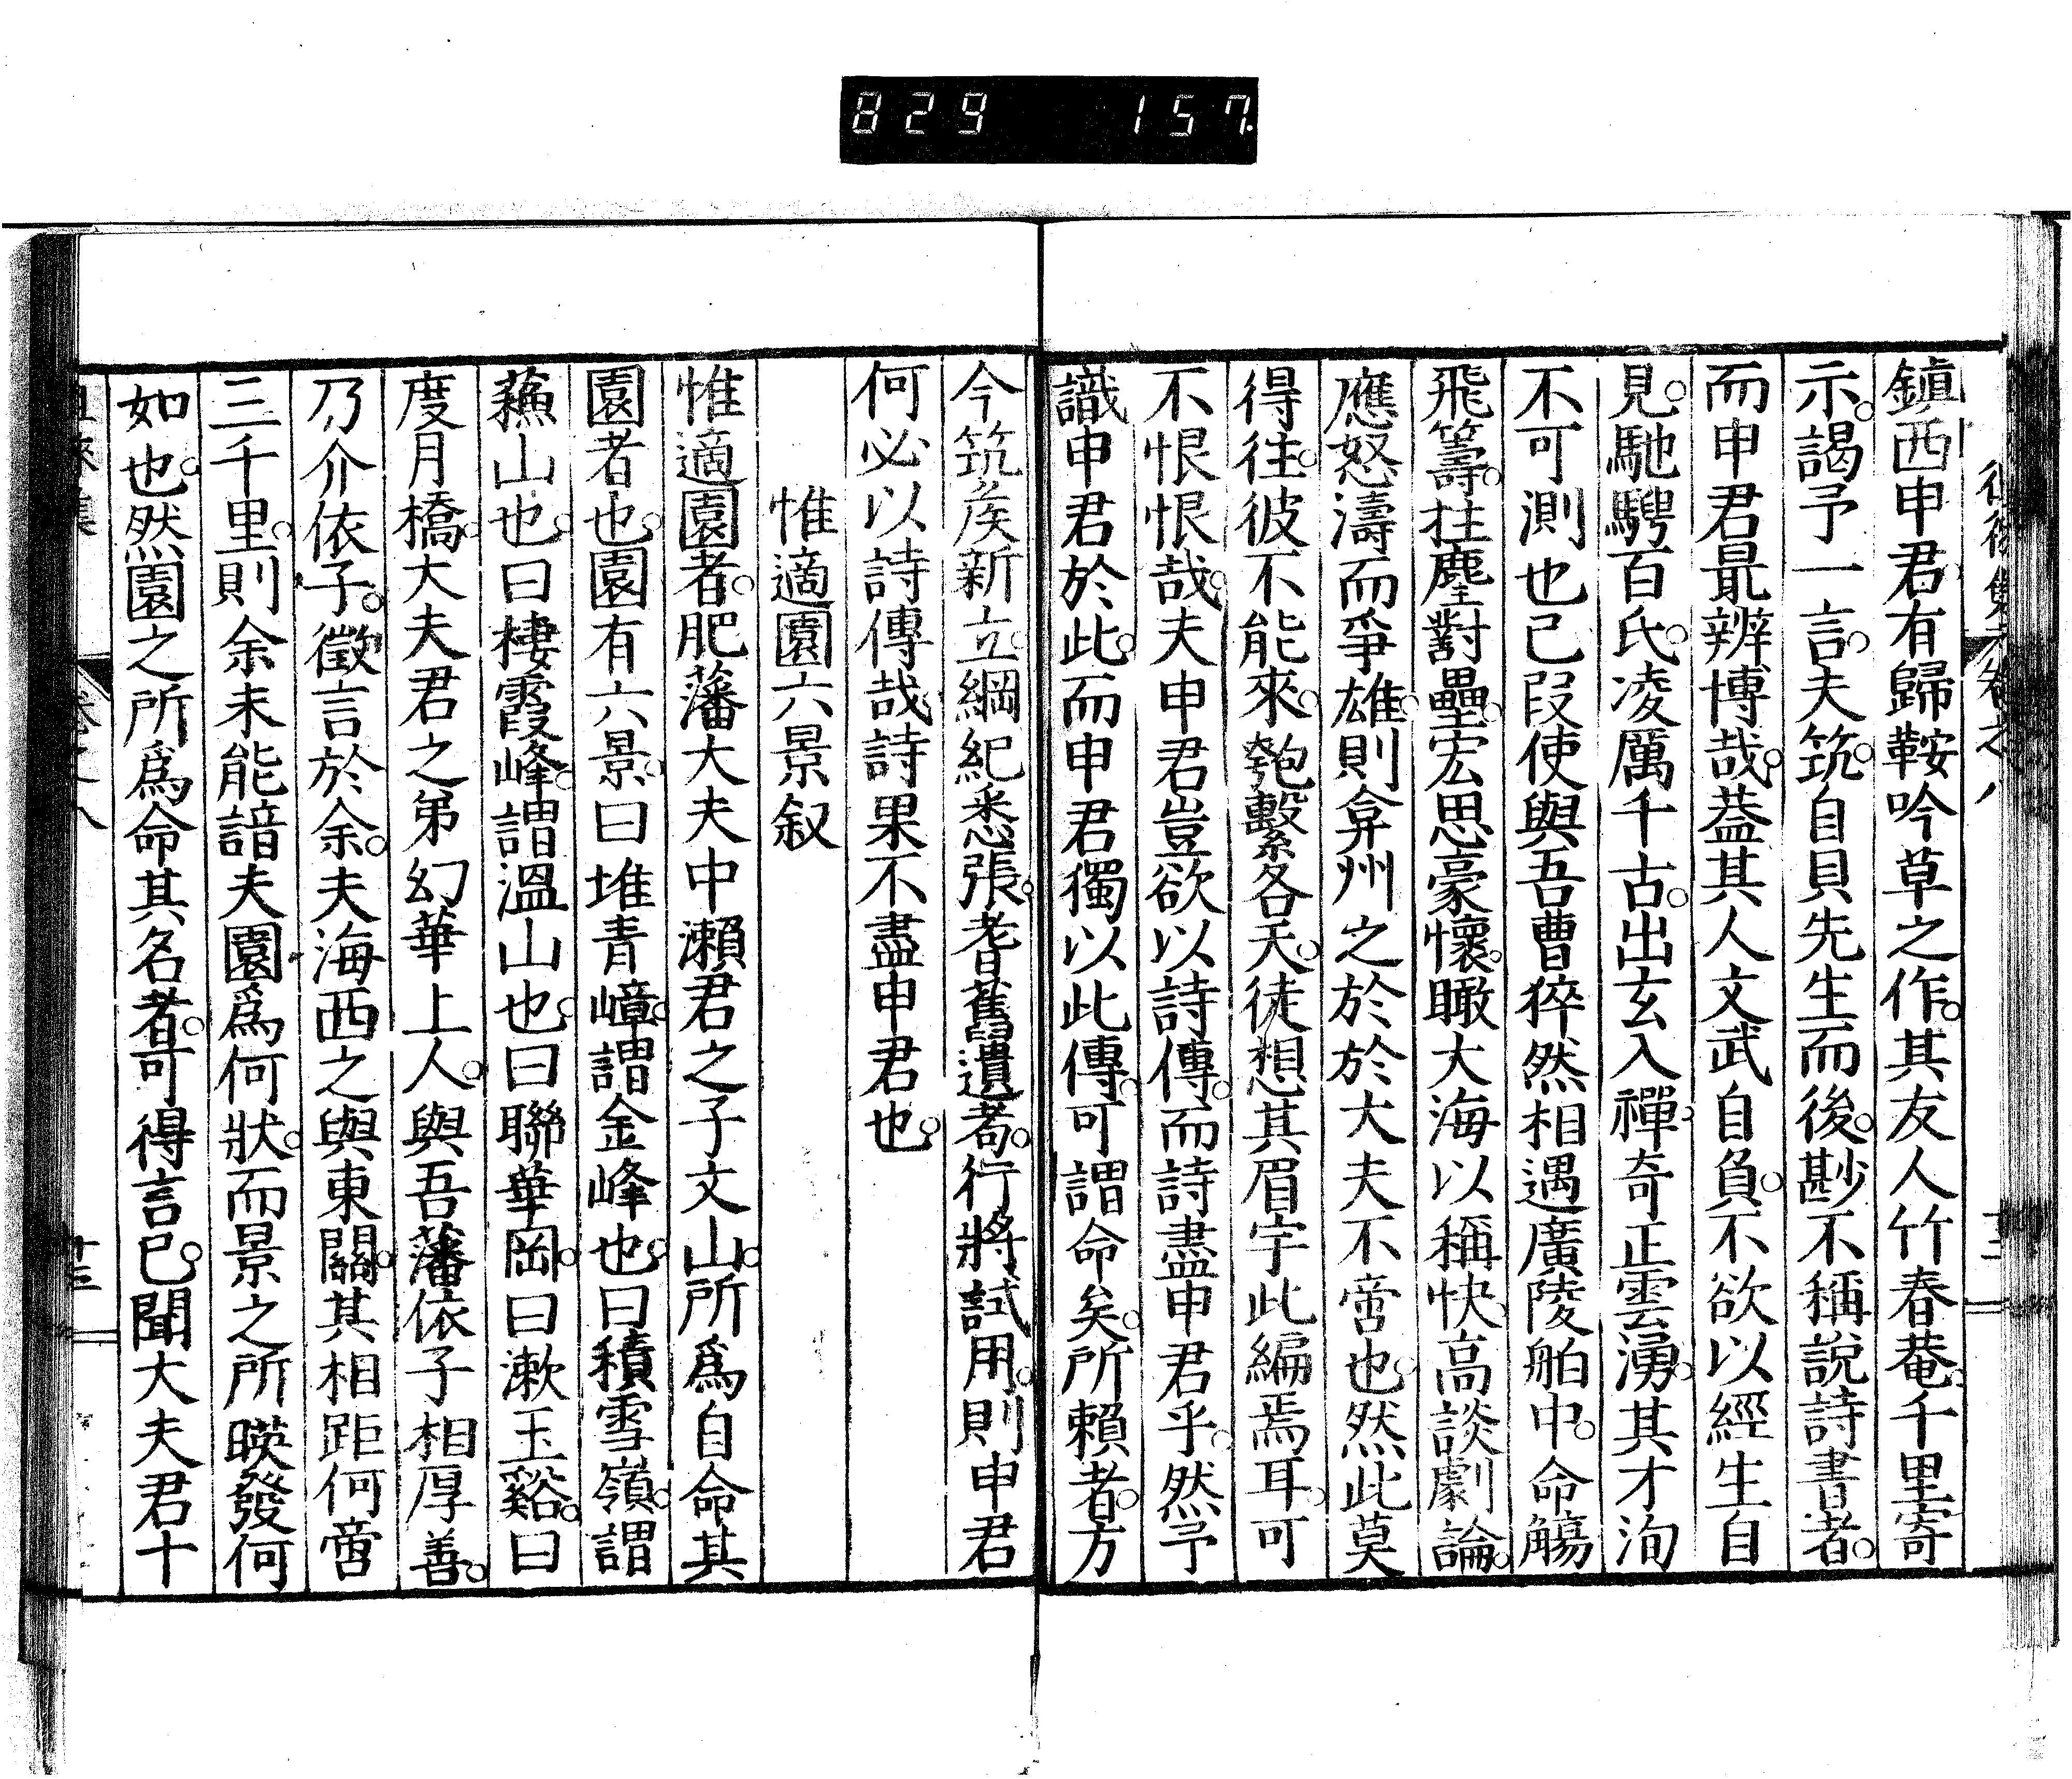 829 157.
鎮西申君有歸鞍吟草之作。其友人竹春菴。千里寄
示。謁予一言。夫筑。自貝先生而後。尠不稱說詩書者。
而申君最辨博哉。葢其人文武自負。不欲以經生自
見。馳騁百氏。凌厲千古。出玄入禪。奇正雲湧。其才洵
不可測也已叚使與吾曹猝然相遇廣陵舶中。命觴
飛籌。拄麈對壘。宏思豪懷。瞰大海以稱快、高談劇論。
應怒濤而爭雄。則弇州之於於大夫不啻也。然此莫
得往。彼不能來。匏繫各天。徒想其眉宇此編焉耳。可
不恨恨哉。夫申君豈欲以詩傳。而詩盡申君乎。然予
識申君於此。而申君獨以此傳。可謂命矣。所賴者。方
今筑矦新立。綱紀悉張。耆舊遺耇。行將試用。則申君
何必以詩傳哉。詩果不盡申君也。
惟適園六景叙
惟適園者。肥藩大夫中瀨君之子文山。所爲自命其
園者也。園有六景。曰堆青嶂。謂金峰也。曰積雪嶺。謂
蘓山也。曰棲霞峰。謂溫山也。曰聯華岡。曰漱玉谿。曰
度月橋。大夫君之弟幻華上人。與吾藩依子相厚善。
乃介依子。徵言於余。夫海西之與東關。其相距何啻
三千里。則余未能諳夫園爲何狀。而景之所暎發何
如也。然園之所爲命其名者。可得言已。聞大夫君十
卷之八
十三